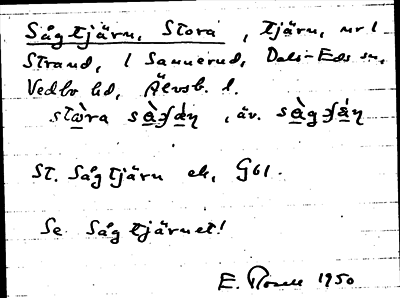 Sågtjärn, Stora, tjärn, nr 1
Strand, 1 Sannerud, Dals-Eds sn,
Vedbo hd, Älvsb. l.
St. Sågtjärn ek, G61.
Se Sågtjärnet!
E. 1950